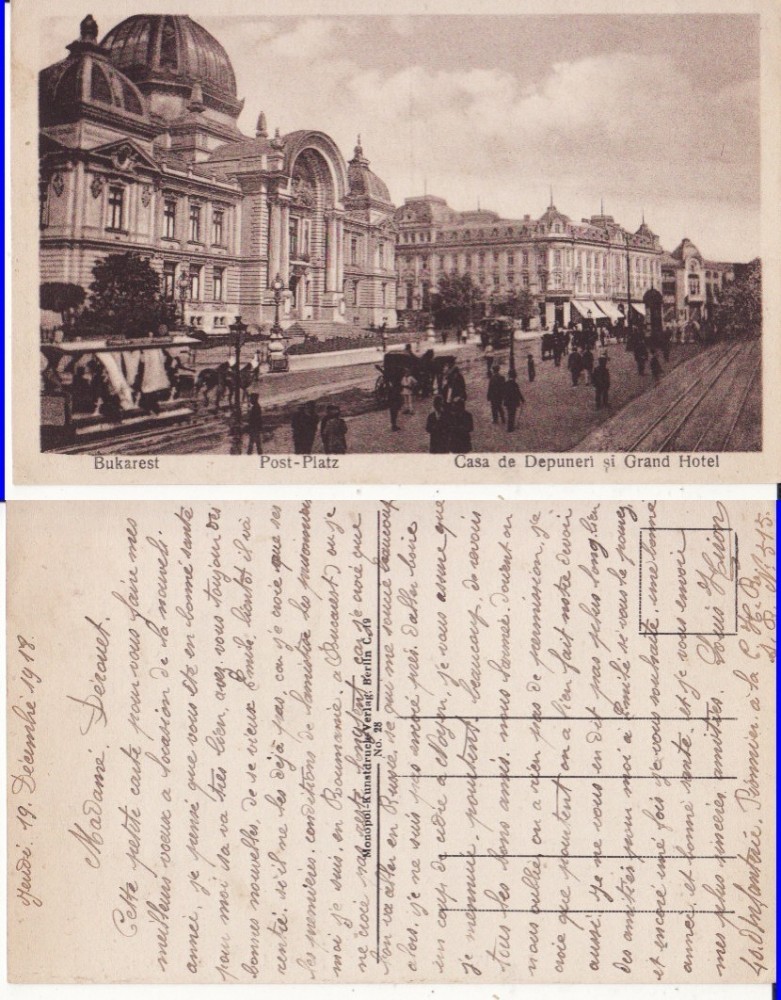 Bukarest Post-Platz Casa de Depuneri și Grand Hotel
Jeudi. 19. Décembre 1918.
Madame. Derouet.
Cette petite carte pour vous faire mes
meilleurs voeux a locasion de la nouvelle
année, je pense que vous ete en bonne santé
pour moi sa va très bien, avez vous toujour des
bonnes nouvelles, de se vieux Emile, bientôt il va
rentré, si il ne les déja pas, car je croie que ses
les premières conditions de lamistice les prisonniers
moi je suis en Roumanie, a (Bucarest) ou je
ne croie pas resté longtemt car je croie que
lon va aller en Russie, se qui me sourie beaucoup
alors, je ne suis pas encore près d'aller boire
un coup de cidre a Noyen, je vous assure que
je mennuie, pourtent, beaucoup, de revoir
tous les bons amis, nous l'armée d'orient on
nous oublier on a rien pas de permission, je
croie que pourtent on a bien fait notre devoir
aussi. je ne vous en dit pas plus long, bien
des amitiés pour moi a Emile si vous le pouvez
et encore une fois je vous souhaite, une bonne
année, et bonne santé, et je vous envoie
mes plus sincères, amitiés. Louis
40. d'Infanterie. a la C. H. R.
S. P. 515.
Monopol-Kunstdruck-Verlag. Berlin C. 19
No. 28